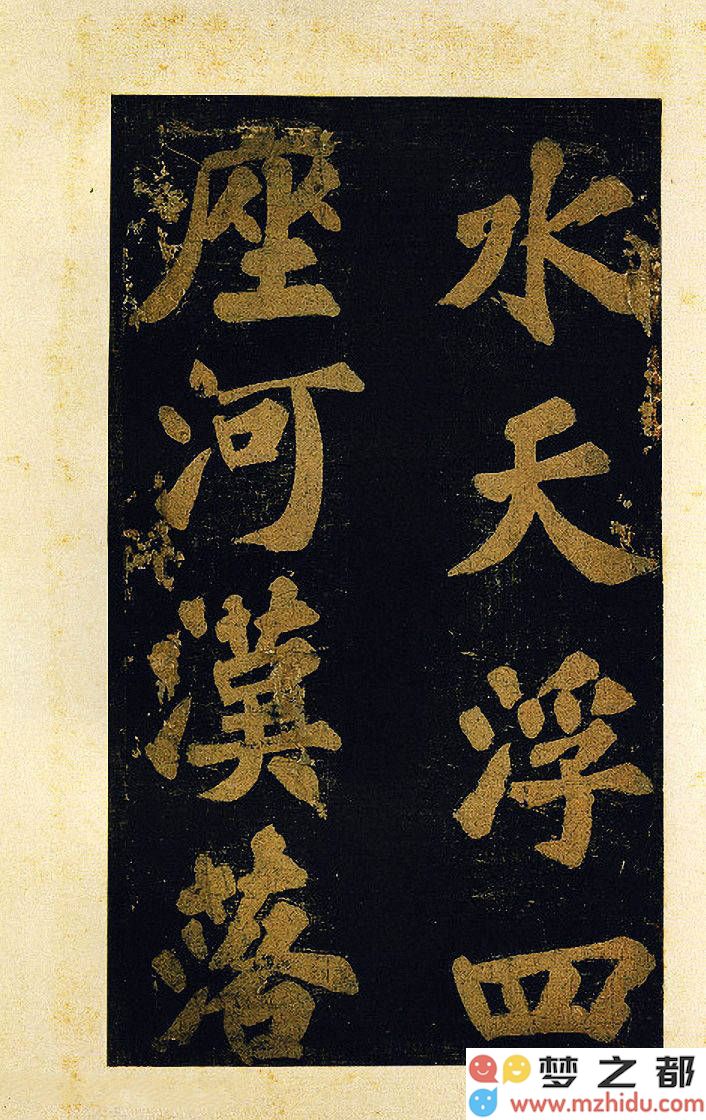 水天浮四
座河漢落
梦之都
www.mzhidu.com